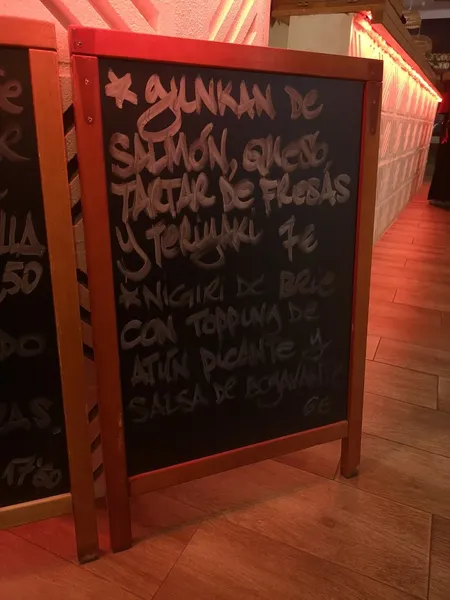 * GUNKAN DE
SALMÓN, QUESO,
TARTAR DE FRESAS
Y TERIYAKI 7€
* NIGIRI DE BRIE
CON TOPPING DE
ATÚN PICANTE Y
SALSA DE
6€
50
DO
17'50